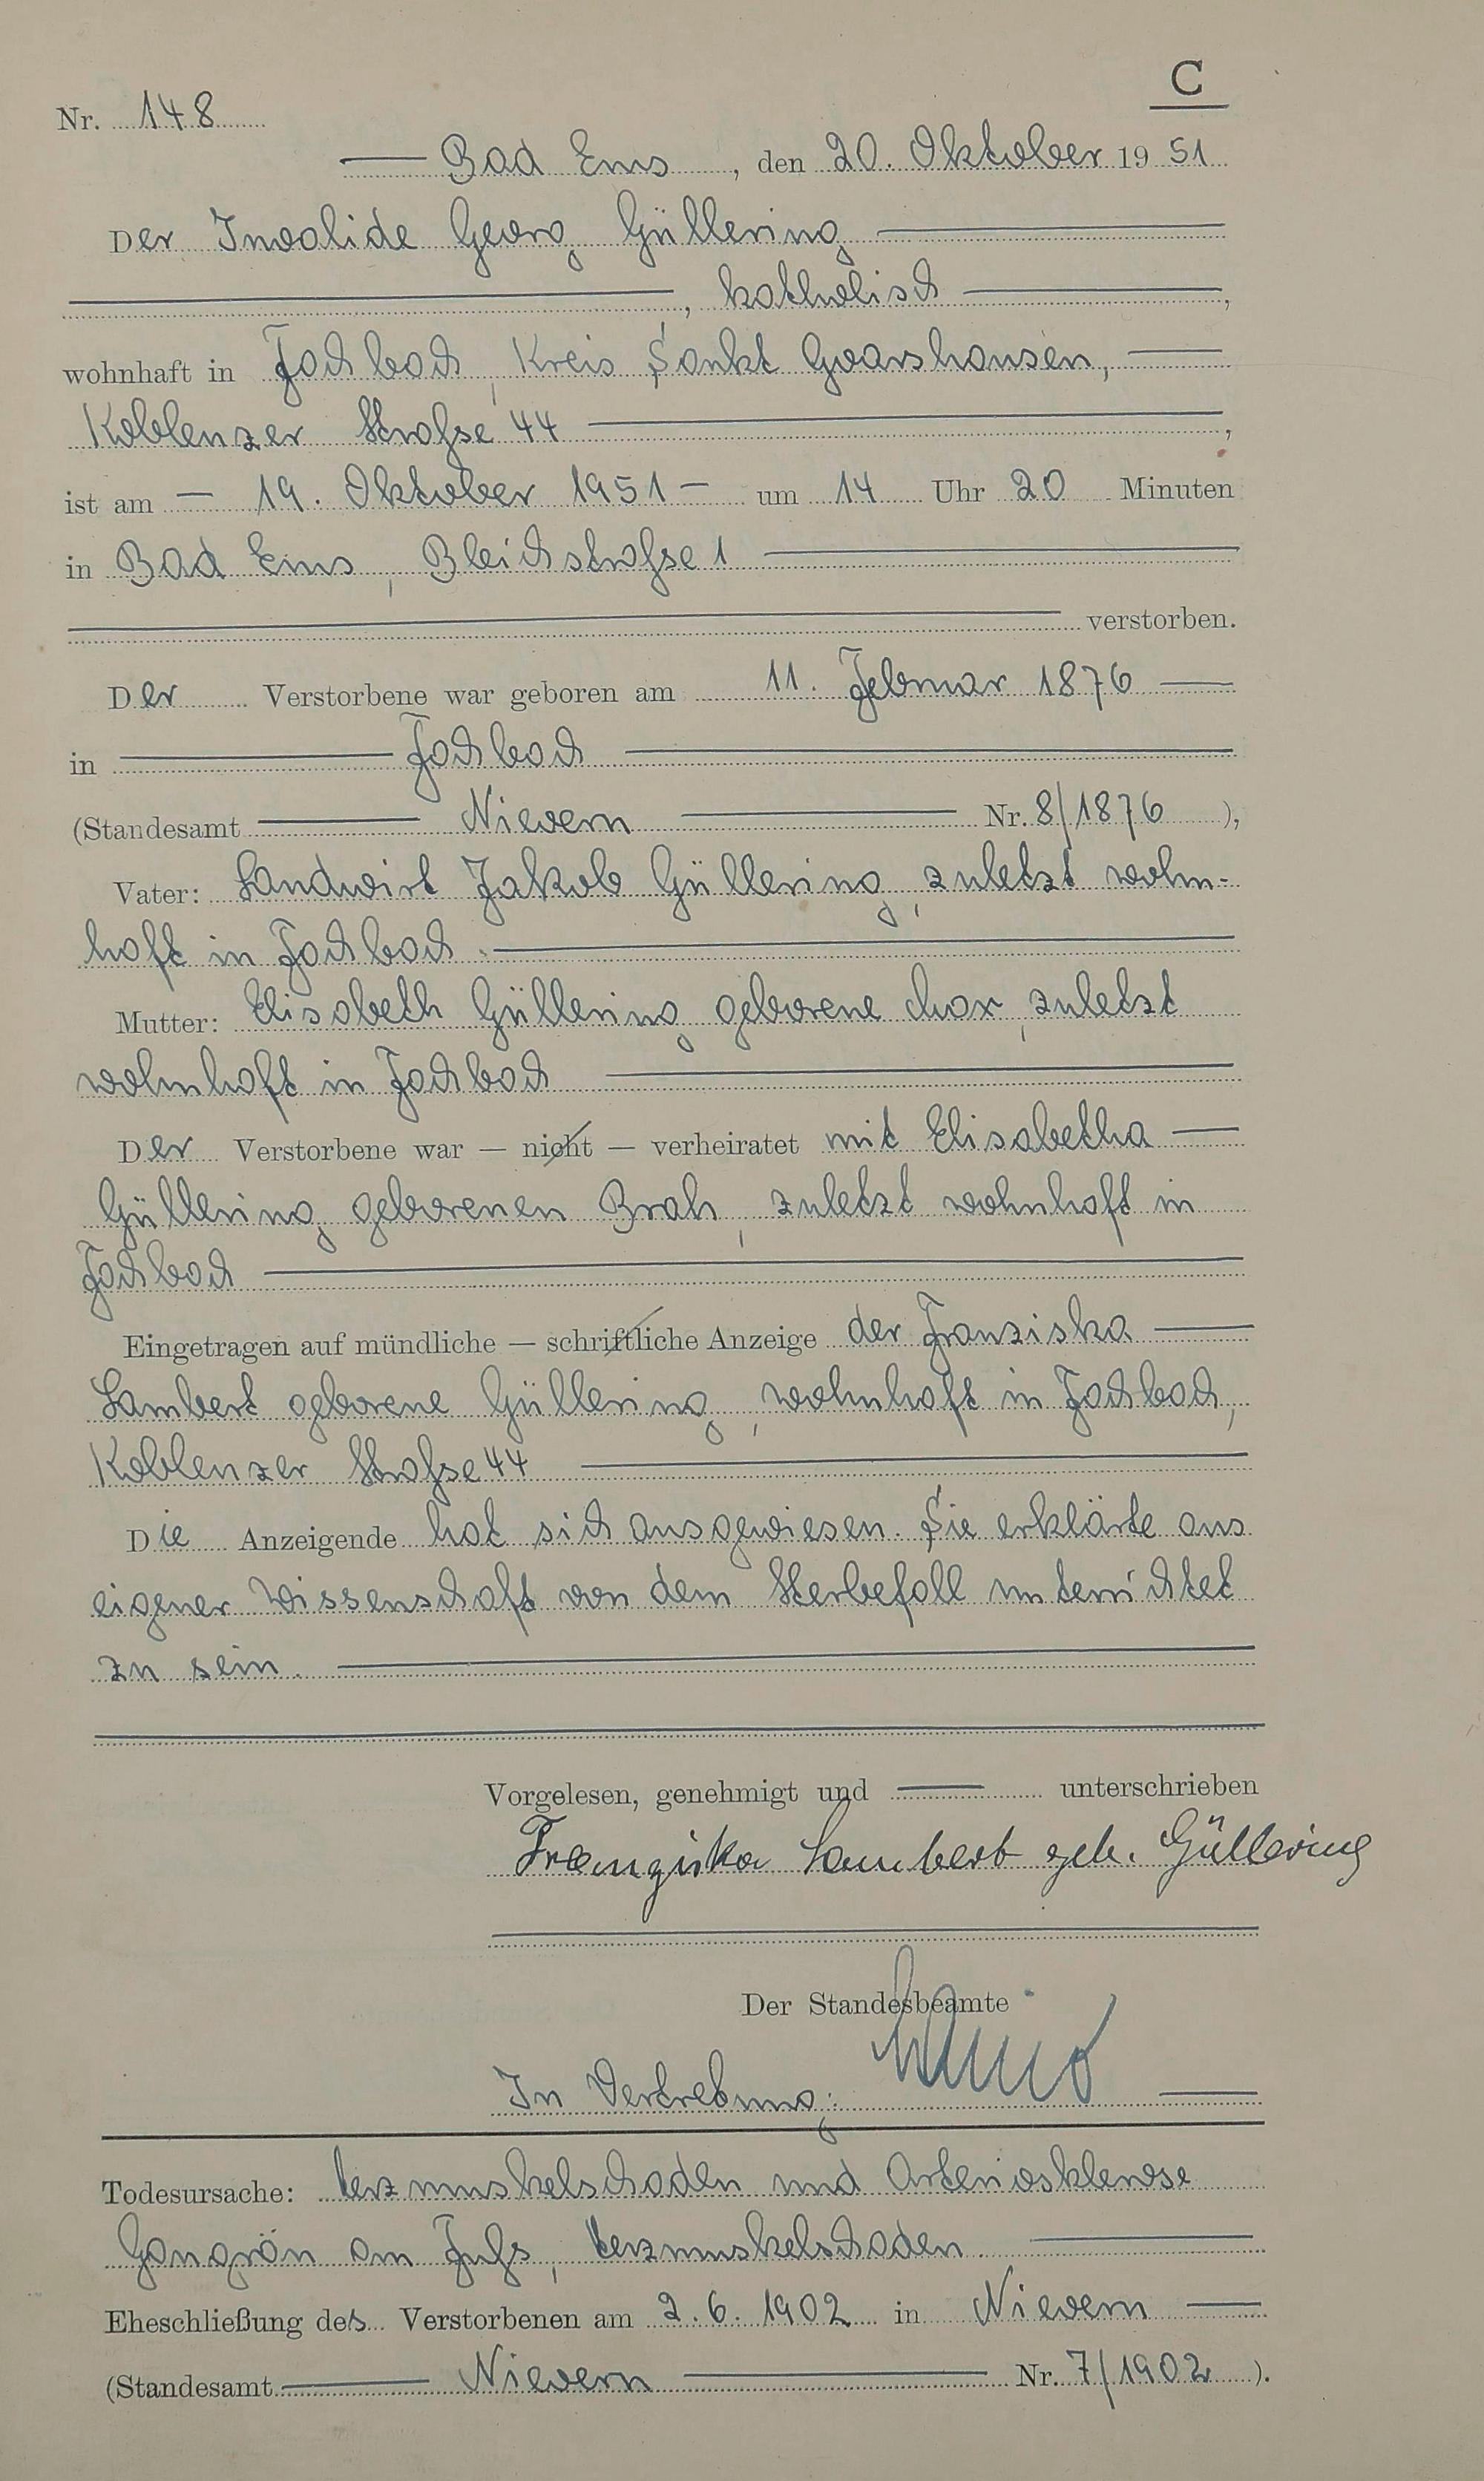 C
Nr. 148
Bad Ems, den 20. Oktober 1951
Der Invalide Georg Güllering
, katholisch,
wohnhaft in Fachbach, Kreis Sankt Goarshausen,
Koblenzer Straße 44,
ist am – 19. Oktober 1951 – um 14 Uhr 20 Minuten
in Bad Ems, Bleichstraße 1
verstorben.
Der Verstorbene war geboren am 11. Februar 1876
in Fachbach
(Standesamt Nievern Nr. 8/1876),
Vater: Landwirt Jakob Güllering, zuletzt wohn-
haft in Fachbach.
Mutter: Elisabeth Güllering geborene, zuletzt
wohnhaft in Fachbach
Der Verstorbene war — nicht — verheiratet mit Elisabetha
Güllering geborenen Brah, zuletzt wohnhaft in
Fachbach
Eingetragen auf mündliche — schriftliche Anzeige der Franziska
Lambert geborene Güllering, wohnhaft in Fachbach,
Koblenzer Straße 44
Die Anzeigende hat sich ausgewiesen. Sie erklärte aus
eigener Wissenschaft von dem Sterbefall unterrichtet
zu sein.
Vorgelesen, genehmigt und unterschrieben
Franziska Lambert geb. Güllering
Der Standesbeamte
In Vertretung:
Todesursache: Herzmuskelschaden und Arteriosklerose
Gangrän am Fuß, Herzmuskelschaden.
Eheschließung des Verstorbenen am 2.6.1902 in Nievern
(Standesamt Nievern Nr. 7/1902).